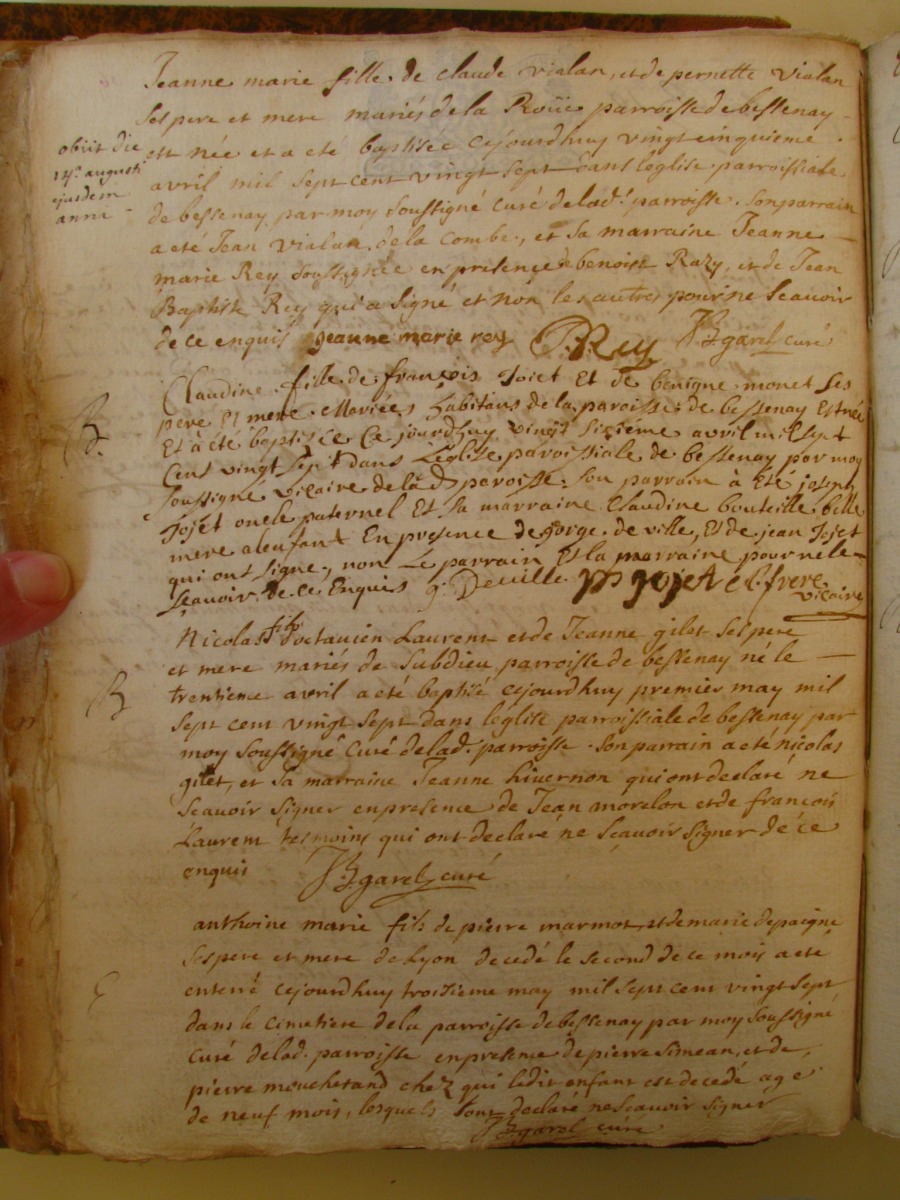 Jeanne marie fille de claude vialan, et de pernette vialan
ses pere et mere mariés de la Roüe parroisse de bessenay
est née et a eté baptisée cejourdhuy vingt cinquieme
avril mil sept cent vingt sept dans leglise parroissiale
de bessenay par moy soussigné curé de lad. parroisse. son parrain
a eté Jean vialan de la combe, et sa marraine Jeanne
marie Rey soussignée en presence de benoist Razy, et de Jean
Baptiste Rey qui a signé et non les autres pour ne scauoir
de ce enquis jeanne marie rey Rey JB garel curé
obiit die
14a augusti
ejusdem
anni
Claudine fille de françois Jojet Et de benigne monet ses
pere Et mere Mariées habitans de la paroisse de bessenay Est née
Et à été baptisée Ce jourdhuy vingt Sixieme avril mil sept
Cens vingt sept dans L'église paroissiale de bessenay par moy
soussigné vicaire de lad. paroisse. son parrain à Eté joseph
Jojet oncle paternel Et sa marraine Claudine bouteille belle
mere a l'enfant En presence de george de ville, Et de jean Jojet
qui ont signé, non Le parrain Et la marraine pour ne le
sçauoir de ce Enquis g. Deville jojet frere
vicaire
B.
Nicolas fils doctauien Laurent et de Jeanne gilet ses pere
et mere mariés de Subdieu parroisse de bessenay né le
trentieme avril a eté baptisé cejourdhuy premier may mil
sept cent vingt sept dans leglise parroissiale de bessenay par
moy soussigné curé de lad. parroisse. son parrain a eté nicolas
gilet, et sa marraine Jeanne hivernon qui ont declaré ne
scauoir signer en presence de Jean morelon et de françois
Laurent tesmoins qui ont declaré ne scauoir signer de ce
enquis JB garel curé
B
anthoine marie fils de pierre marmot, et de marie depaigne
ses pere et mere de Lyon decedé le second de ce mois a eté
enterré cejourdhuy troisieme may mil sept cent vingt sept
dans le cimetiere de la parroisse de bessenay par moy soussigné
curé de lad. parroisse en presence de pierre simean, et de
pierre moucherand chez qui ledit enfant est decedé agé
de neuf mois, lesquels ont declaré ne scauoir signer
JB garel curé